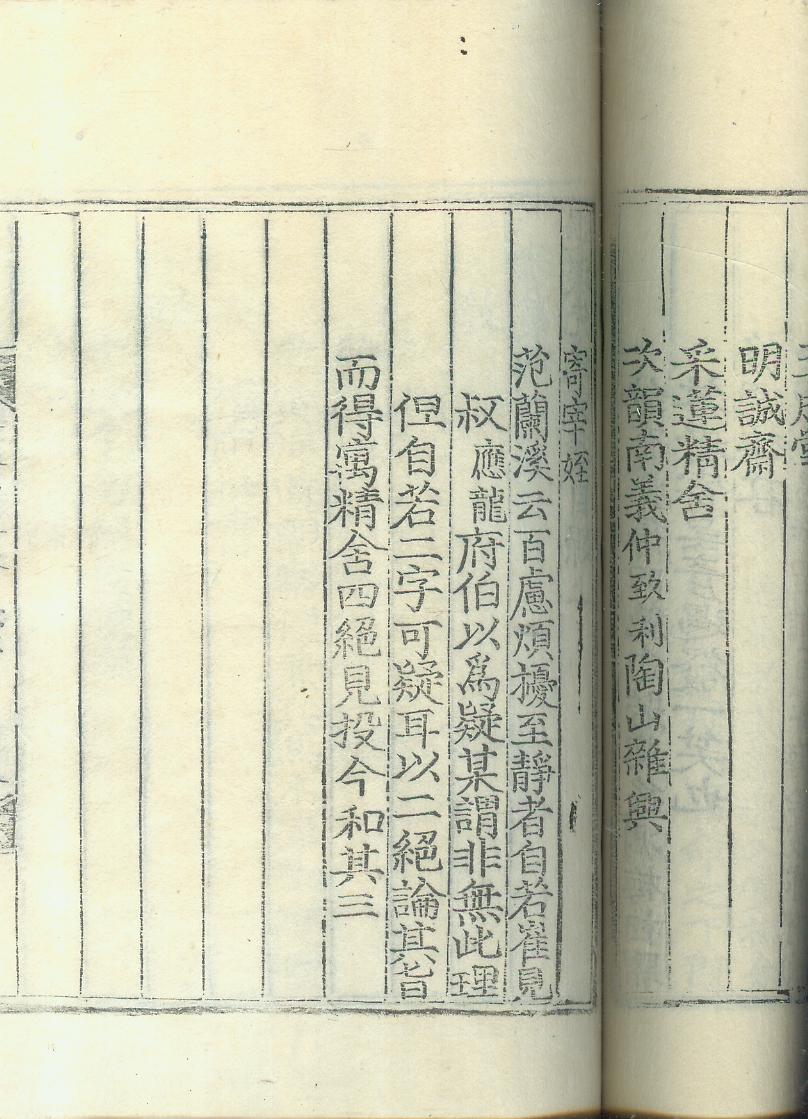 明誠齋
采蓮精舍
次韻南義仲致利陶山雜興
寄宰姪
范蘭溪云百慮煩擾至靜者自若崔見
叔應龍府伯以爲疑某謂非無此理
但自若二字可疑耳以二絕論其旨
而得寓精舍四絕見投今和其三